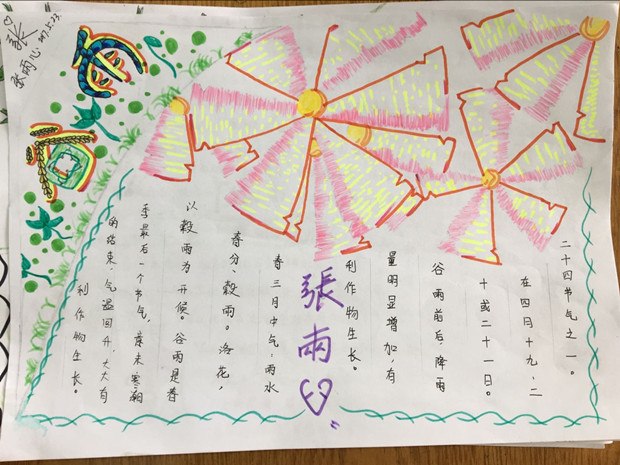 二十四节气之一。
在四月十九、二
十或二十一日。
谷雨前后,降雨
量明显增加,有
利作物生长。
張雨心
春三月中气:雨水
春分、穀雨。洛花,
以穀雨为开候。谷雨是春
季最后一个节气,意味寒潮
的结束,气温回升,大大有
利作物生长。
张
张雨心